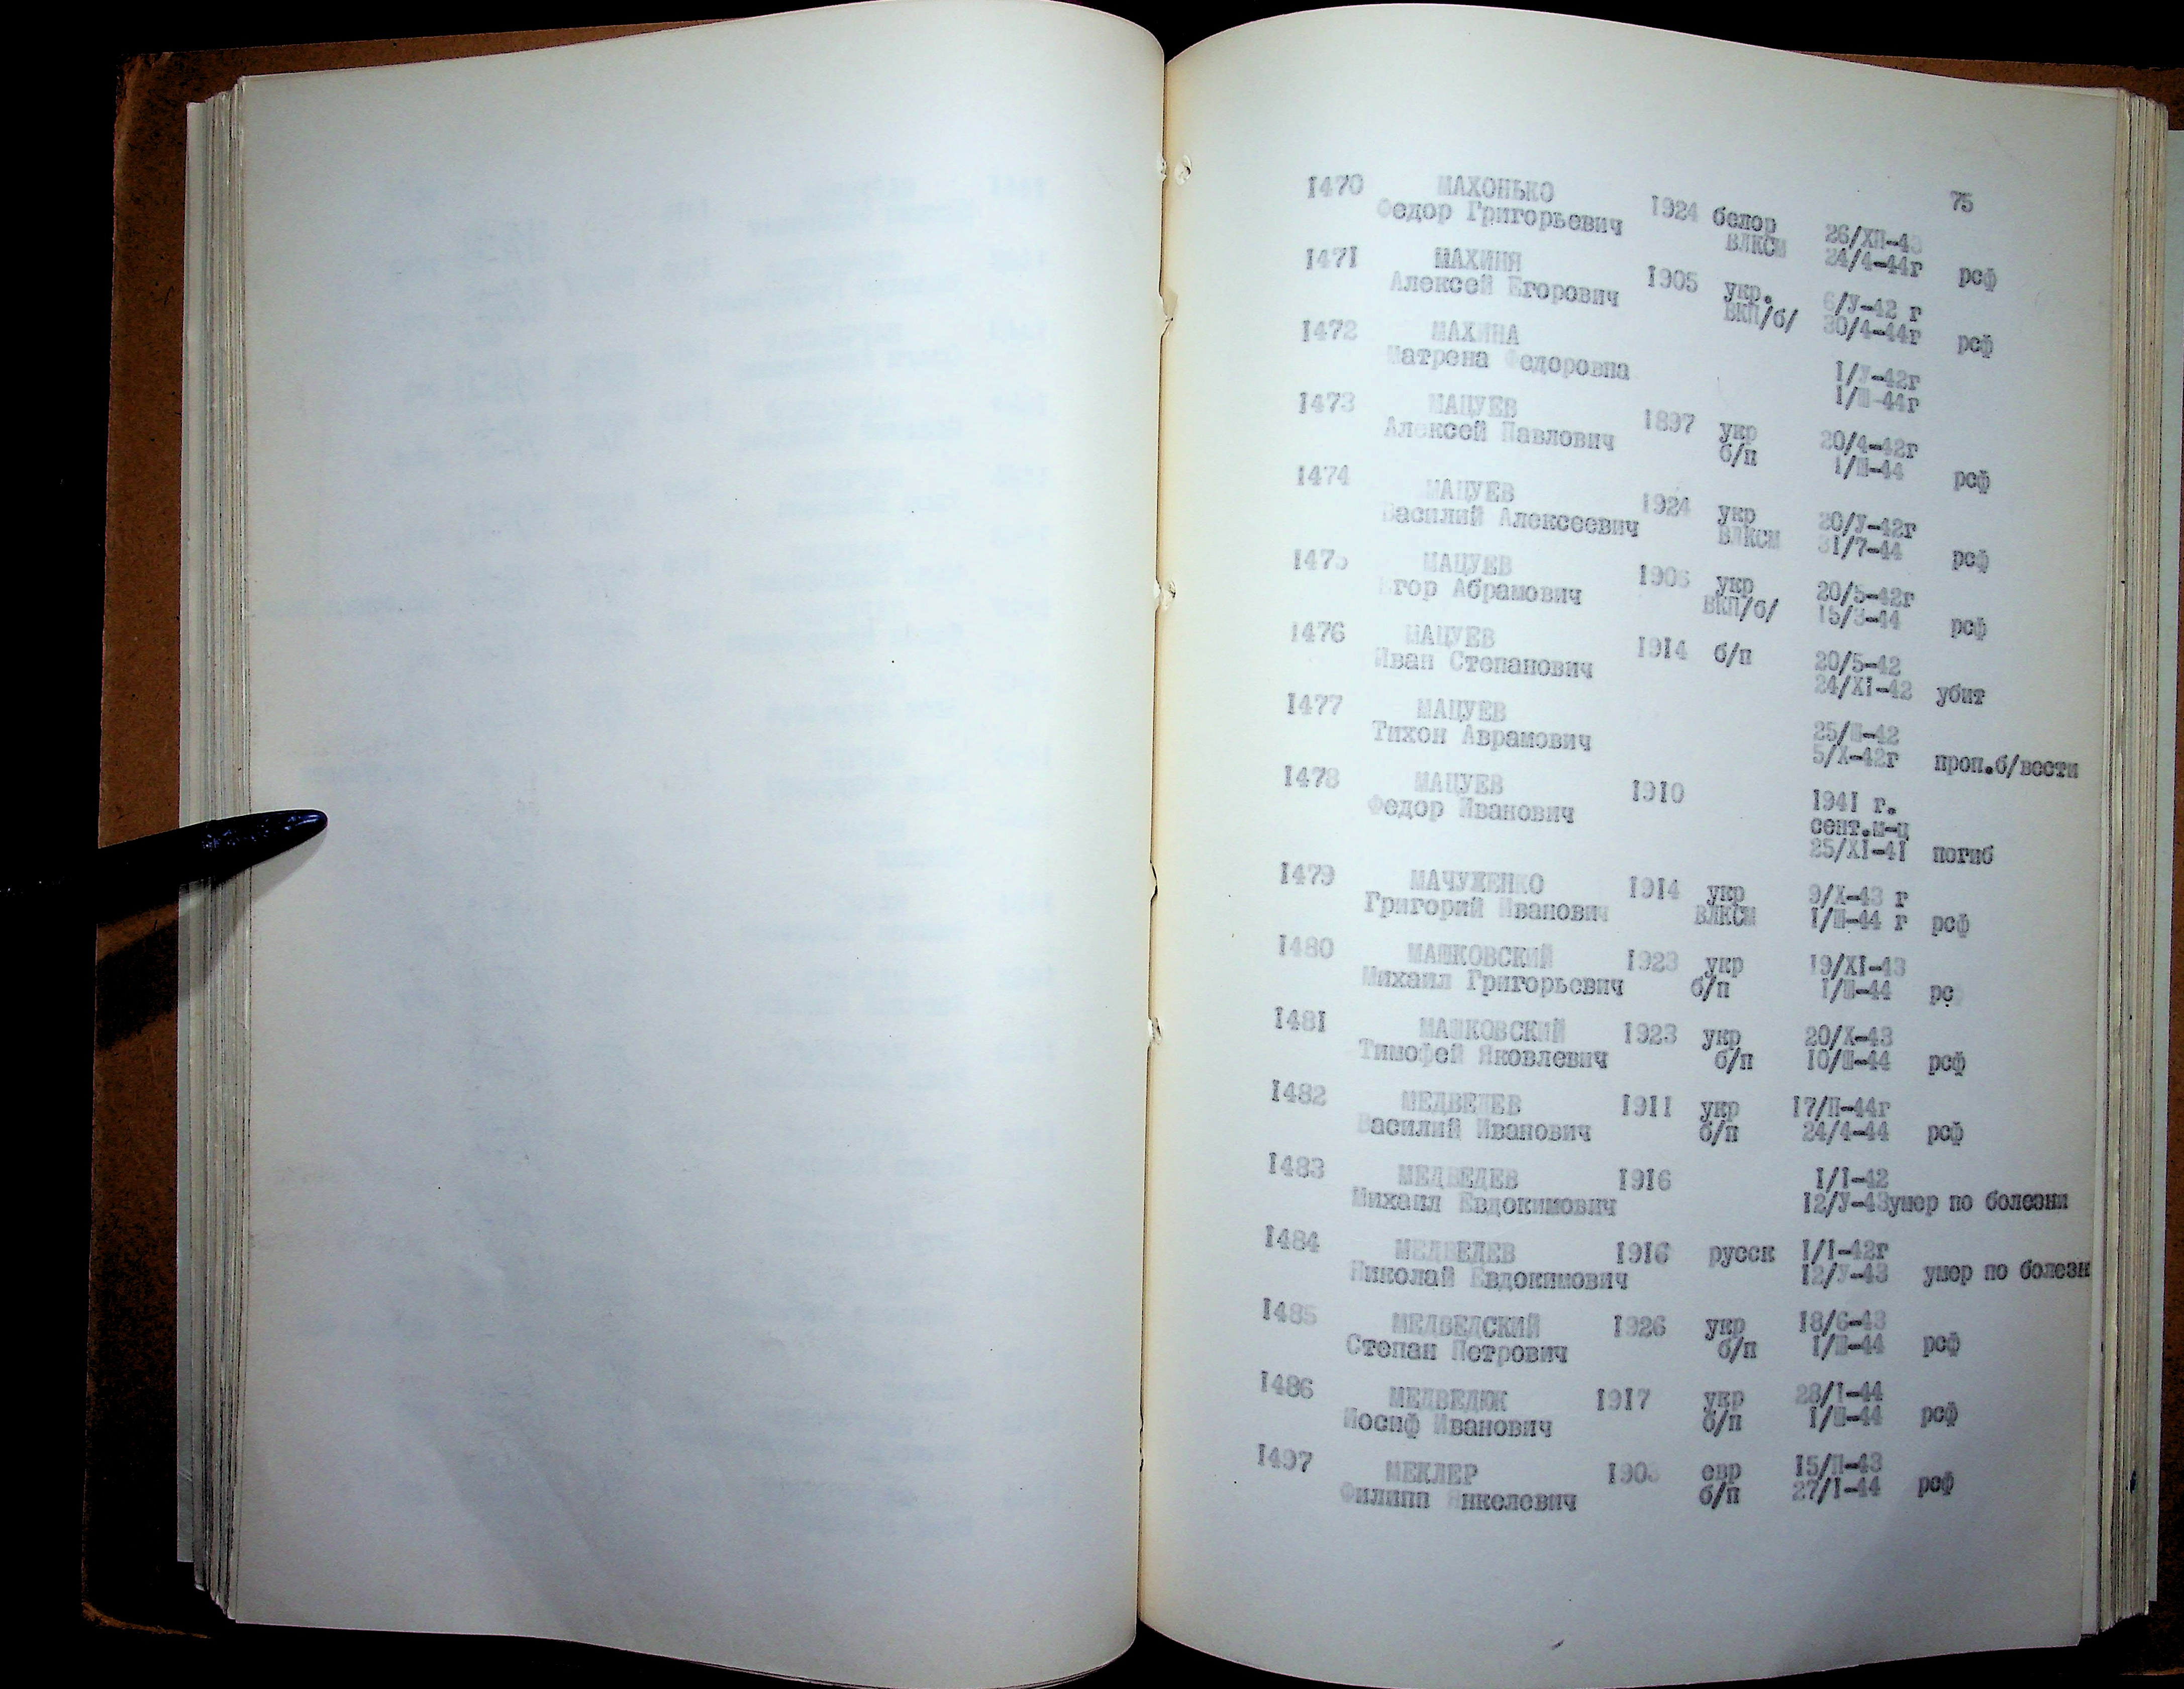 75
1470 МАХОНЬКО 1924 белор 26/ХП-43
Федор Григорьевич ВЛКСМ 24/4-44г рсф
1471 МАХИНЯ 1905 укр. 6/У-42 г
Алексей Егорович ВКП/б/ 30/4-44г рсф
1472 МАХИНА 1/У-42г
Матрена Федоровна 1/Ш-44г
1473 МАЦУЕВ 1897 укр 20/4-42г
Алексей Павлович б/п 1/Ш-44 рсф
1474 МАЦУЕВ 1924 укр 20/У-42г
Василий Алексеевич ВЛКСМ 31/7-44 рсф
1475 МАЦУЕВ укр 20/5-42г
Егор Абрамович ВКП/б/ 15/3-44 рсф
1476 МАЦУЕВ 1914 б/п 20/5-42
Иван Степанович 24/XI-42 убит
1477 МАЦУЕВ 25/Ш-42
Тихон Аврамович 5/Х-42г проп.б/вести
1478 МАЦУЕВ 1910 1941 г.
Федор Иванович сент.м-ц
25/XI-41 погиб
1479 МАЧУЖЕНКО 1914 укр 9/Х-43 г
Григорий Иванович ВЛКСМ 1/Ш-44 г рсф
1480 МАШКОВСКИЙ 1923 укр 19/XI-43
Михаил Григорьевич б/п 1/Ш-44 рс
1481 МАШКОВСКИЙ 1923 укр 20/Х-43
Тимофей Яковлевич б/п 10/Ш-44 рсф
1482 МЕДВЕДЕВ 1911 укр 17/П-44г
Василий Иванович б/п 24/4-44 рсф
1483 МЕДВЕДЕВ 1916 1/1-42
Михаил Евдокимович 12/У-43умер по болезни
1484 МЕДВЕДЕВ 1916 русск 1/1-42г
Николай Евдокимович 12/У-43 умер по болезн
1485 МЕДВЕДСКИЙ 1926 укр 18/6-43
Степан Петрович б/п 1/Ш-44 рсф
1486 МЕДВЕДЮК 1917 укр 28/1-44
Иосиф Иванович б/п 1/Ш-44 рсф
1497 МЕКЛЕР евр 15/П-43
Филипп Янкелевич б/п 27/1-44 рсф